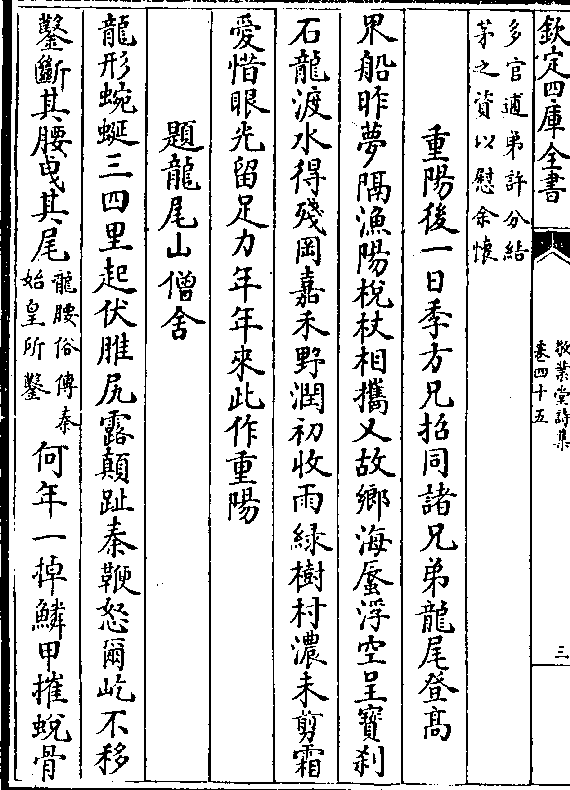 欽定四庫全書
敬業堂詩集
卷四十五
三
多官逋弟許分結
茅之資以慰余懷
重陽後一日季方兄招同諸兄弟龍尾登高
界船昨夢隔漁陽梲杖相攜又故鄉海蜃浮空呈寶刹
石龍渡水得殘岡嘉禾野潤初收雨緑樹村濃未剪霜
愛惜眼光留足力年年來此作重陽
題龍尾山僧舍
龍形蜿蜒三四里起伏脽尻露顛趾秦鞭怒爾屹不移
鑿斷其腰曳其尾龍腰俗傳秦
始皇所鑿
何年一掉鱗甲摧蛻骨